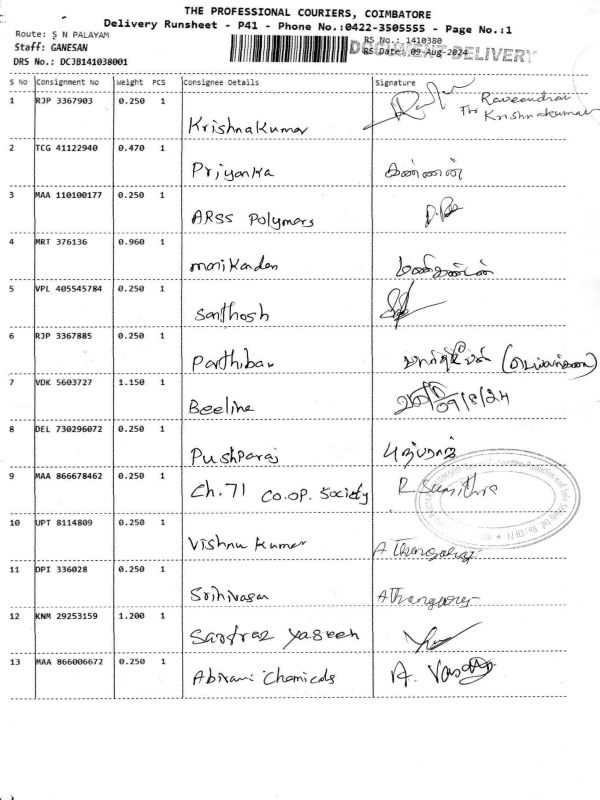 THE PROFESSIONAL COURIERS, COIMBATORE
Delivery Runsheet - P41 - Phone No.:0422-3505555 - Page No.:1
Route: S N PALAYAM
RS No.: 1410380
DOCUMENT DELIVERY
Staff: GANESAN
RS Date: 09-Aug-2024
DRS No.: DCJB141038001
S No Consignment No Weight PCS Consignee Details Signature
1 RJP 3367903 0.250 1 Krishnakumar Raveendran
For Krishnakumar
2 TCG 41122940 0.470 1 Priyanka கண்ணன்
3 MAA 110100177 0.250 1 ARSS Polymers
4 MRT 376136 0.960 1 manikandan மணிகண்டன்
5 VPL 405545784 0.250 1 Santhosh
6 RJP 3367885 0.250 1 Parthiban
7 VDK 5603727 1.150 1 Beeline 09/8/24
8 DEL 730296072 0.250 1 Pushparaj புஷ்பராஜ்
9 MAA 866678462 0.250 1 Ch.71 CO.OP. Society R Sumithra
10 UPT 8114809 0.250 1 Vishnu Kumar A Thangaraj
11 DPI 336028 0.250 1 Srinivasan A Thangaraj
12 KNM 29253159 1.200 1 Sarfraz Yaseen
13 MAA 866006672 0.250 1 Abirami Chemicals A. Vasa